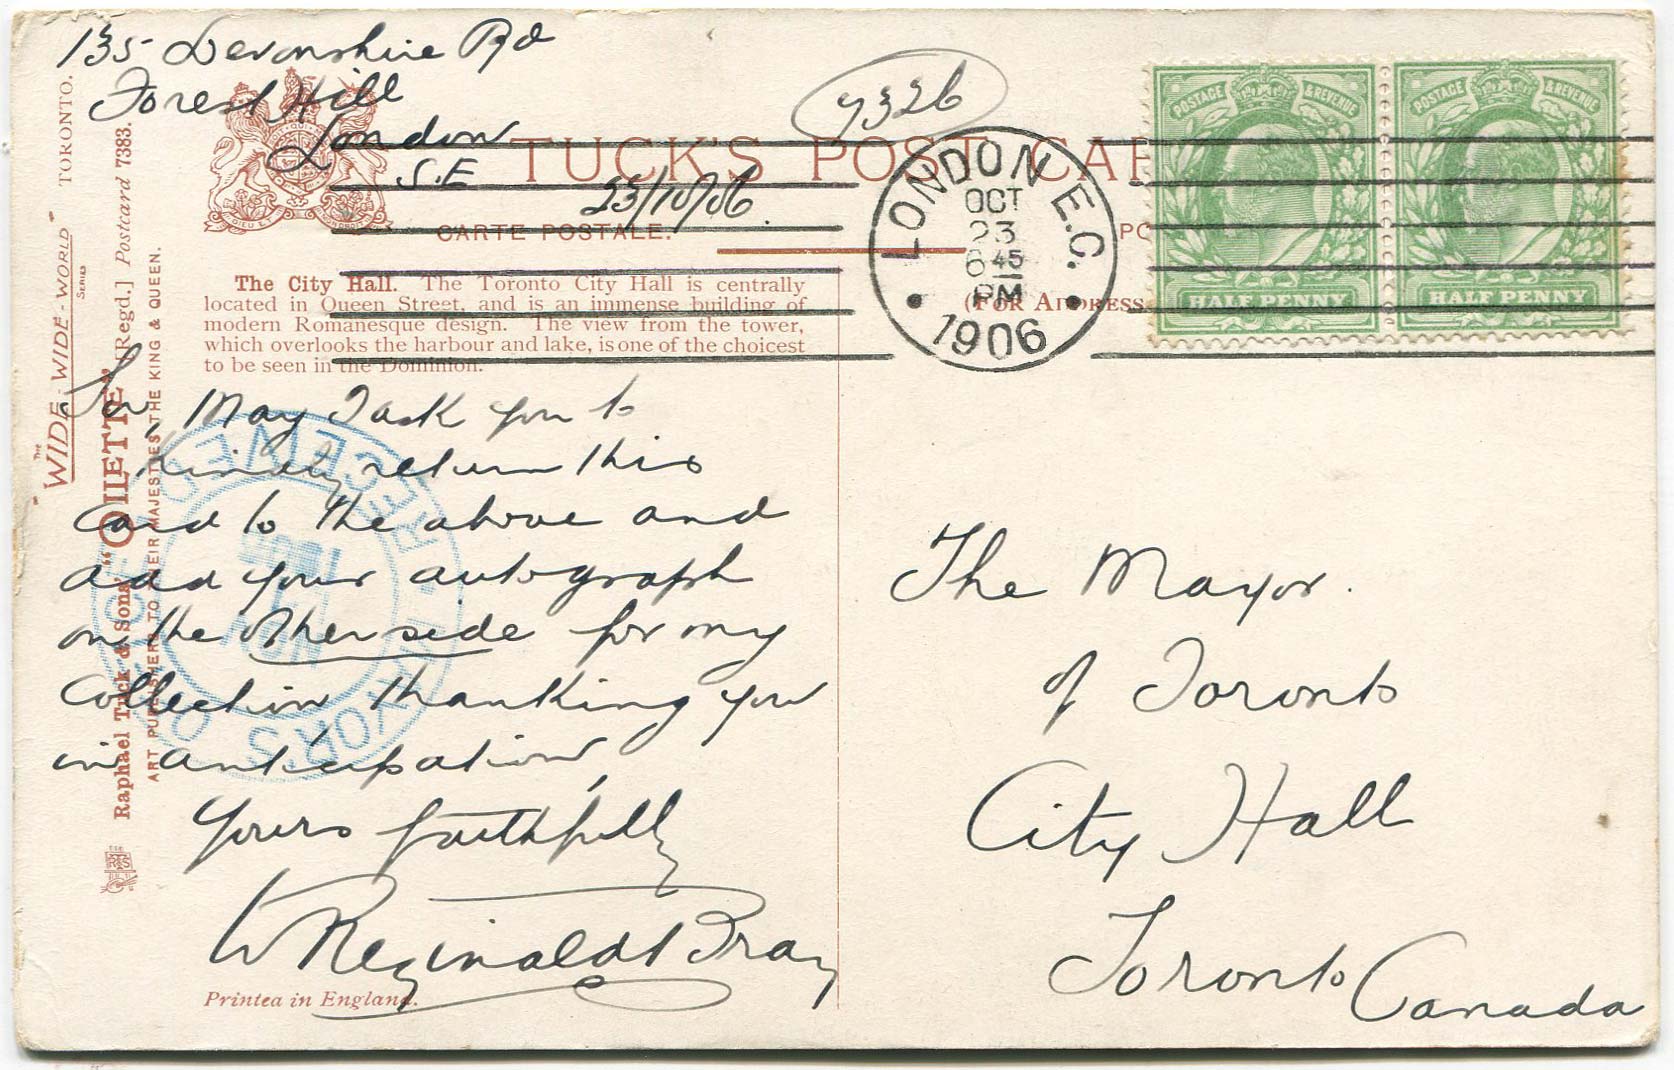 135 Devonshire Rd
Forest Hill
London
S.E
23/10/06
7326
TUCK'S POST CAR
CARTE POSTALE.
(FOR ADDRESS
LONDON E.C.
OCT
23
6 45
PM
1906
POSTAGE & REVENUE
HALF PENNY
POSTAGE & REVENUE
HALF PENNY
The City Hall. The Toronto City Hall is centrally
located in Queen Street, and is an immense building of
modern Romanesque design. The view from the tower,
which overlooks the harbour and lake, is one of the choicest
to be seen in the Dominion.
Sir, May I ask you to
kindly return this
card to the above and
add your autograph
on the other side for my
collection thanking you
in anticipation,
Yours faithfully
W Reginald Bray
Printed in England.
The Mayor.
of Toronto
City Hall
Toronto Canada
THE "WIDE-WIDE-WORLD" SERIES
TORONTO.
Raphael Tuck & Sons' "OILETTE" [Regd.] Postcard 7383.
ART PUBLISHERS TO THEIR MAJESTIES THE KING & QUEEN.
RECEIVED
MAYOR'S OFFICE
NOV
1906